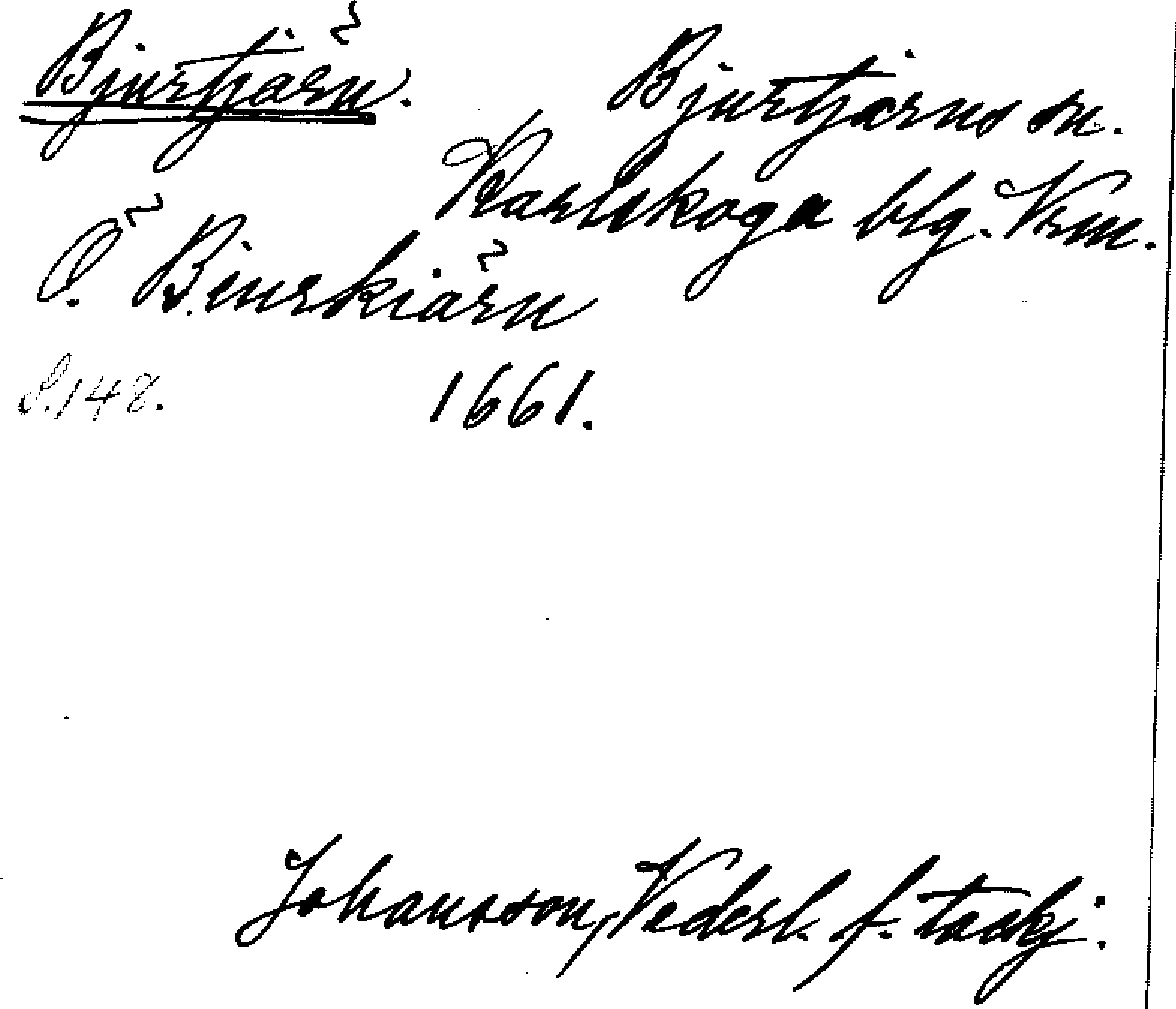 Bjurtjärn.
Bjurtjärns sn.
Karlskoga blg. Vrm.
Ö. Biurkiärn
S. 148. 1661.
Johansson, Vederl. f. tackj.